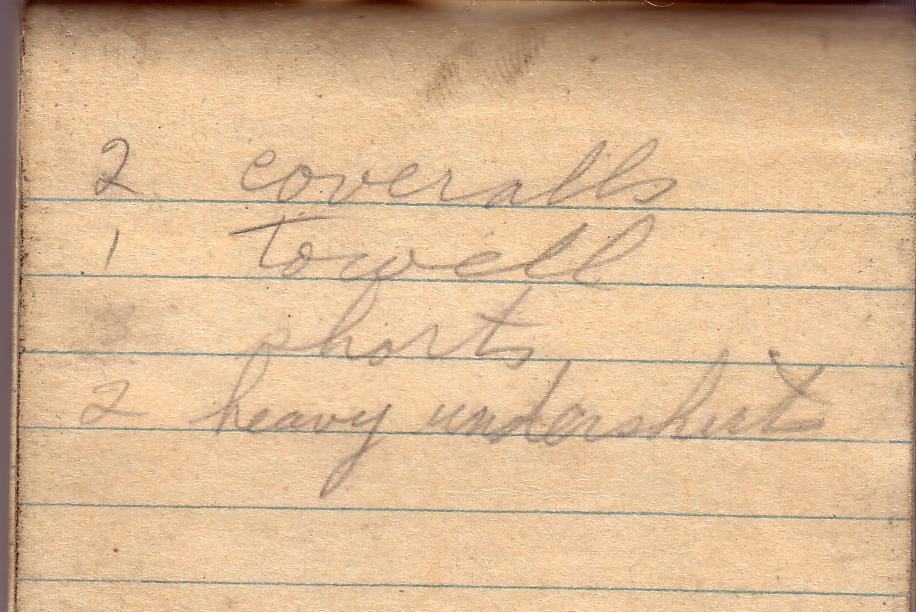 2 coveralls
1 towell
3 shorts
2 heavy undershirts